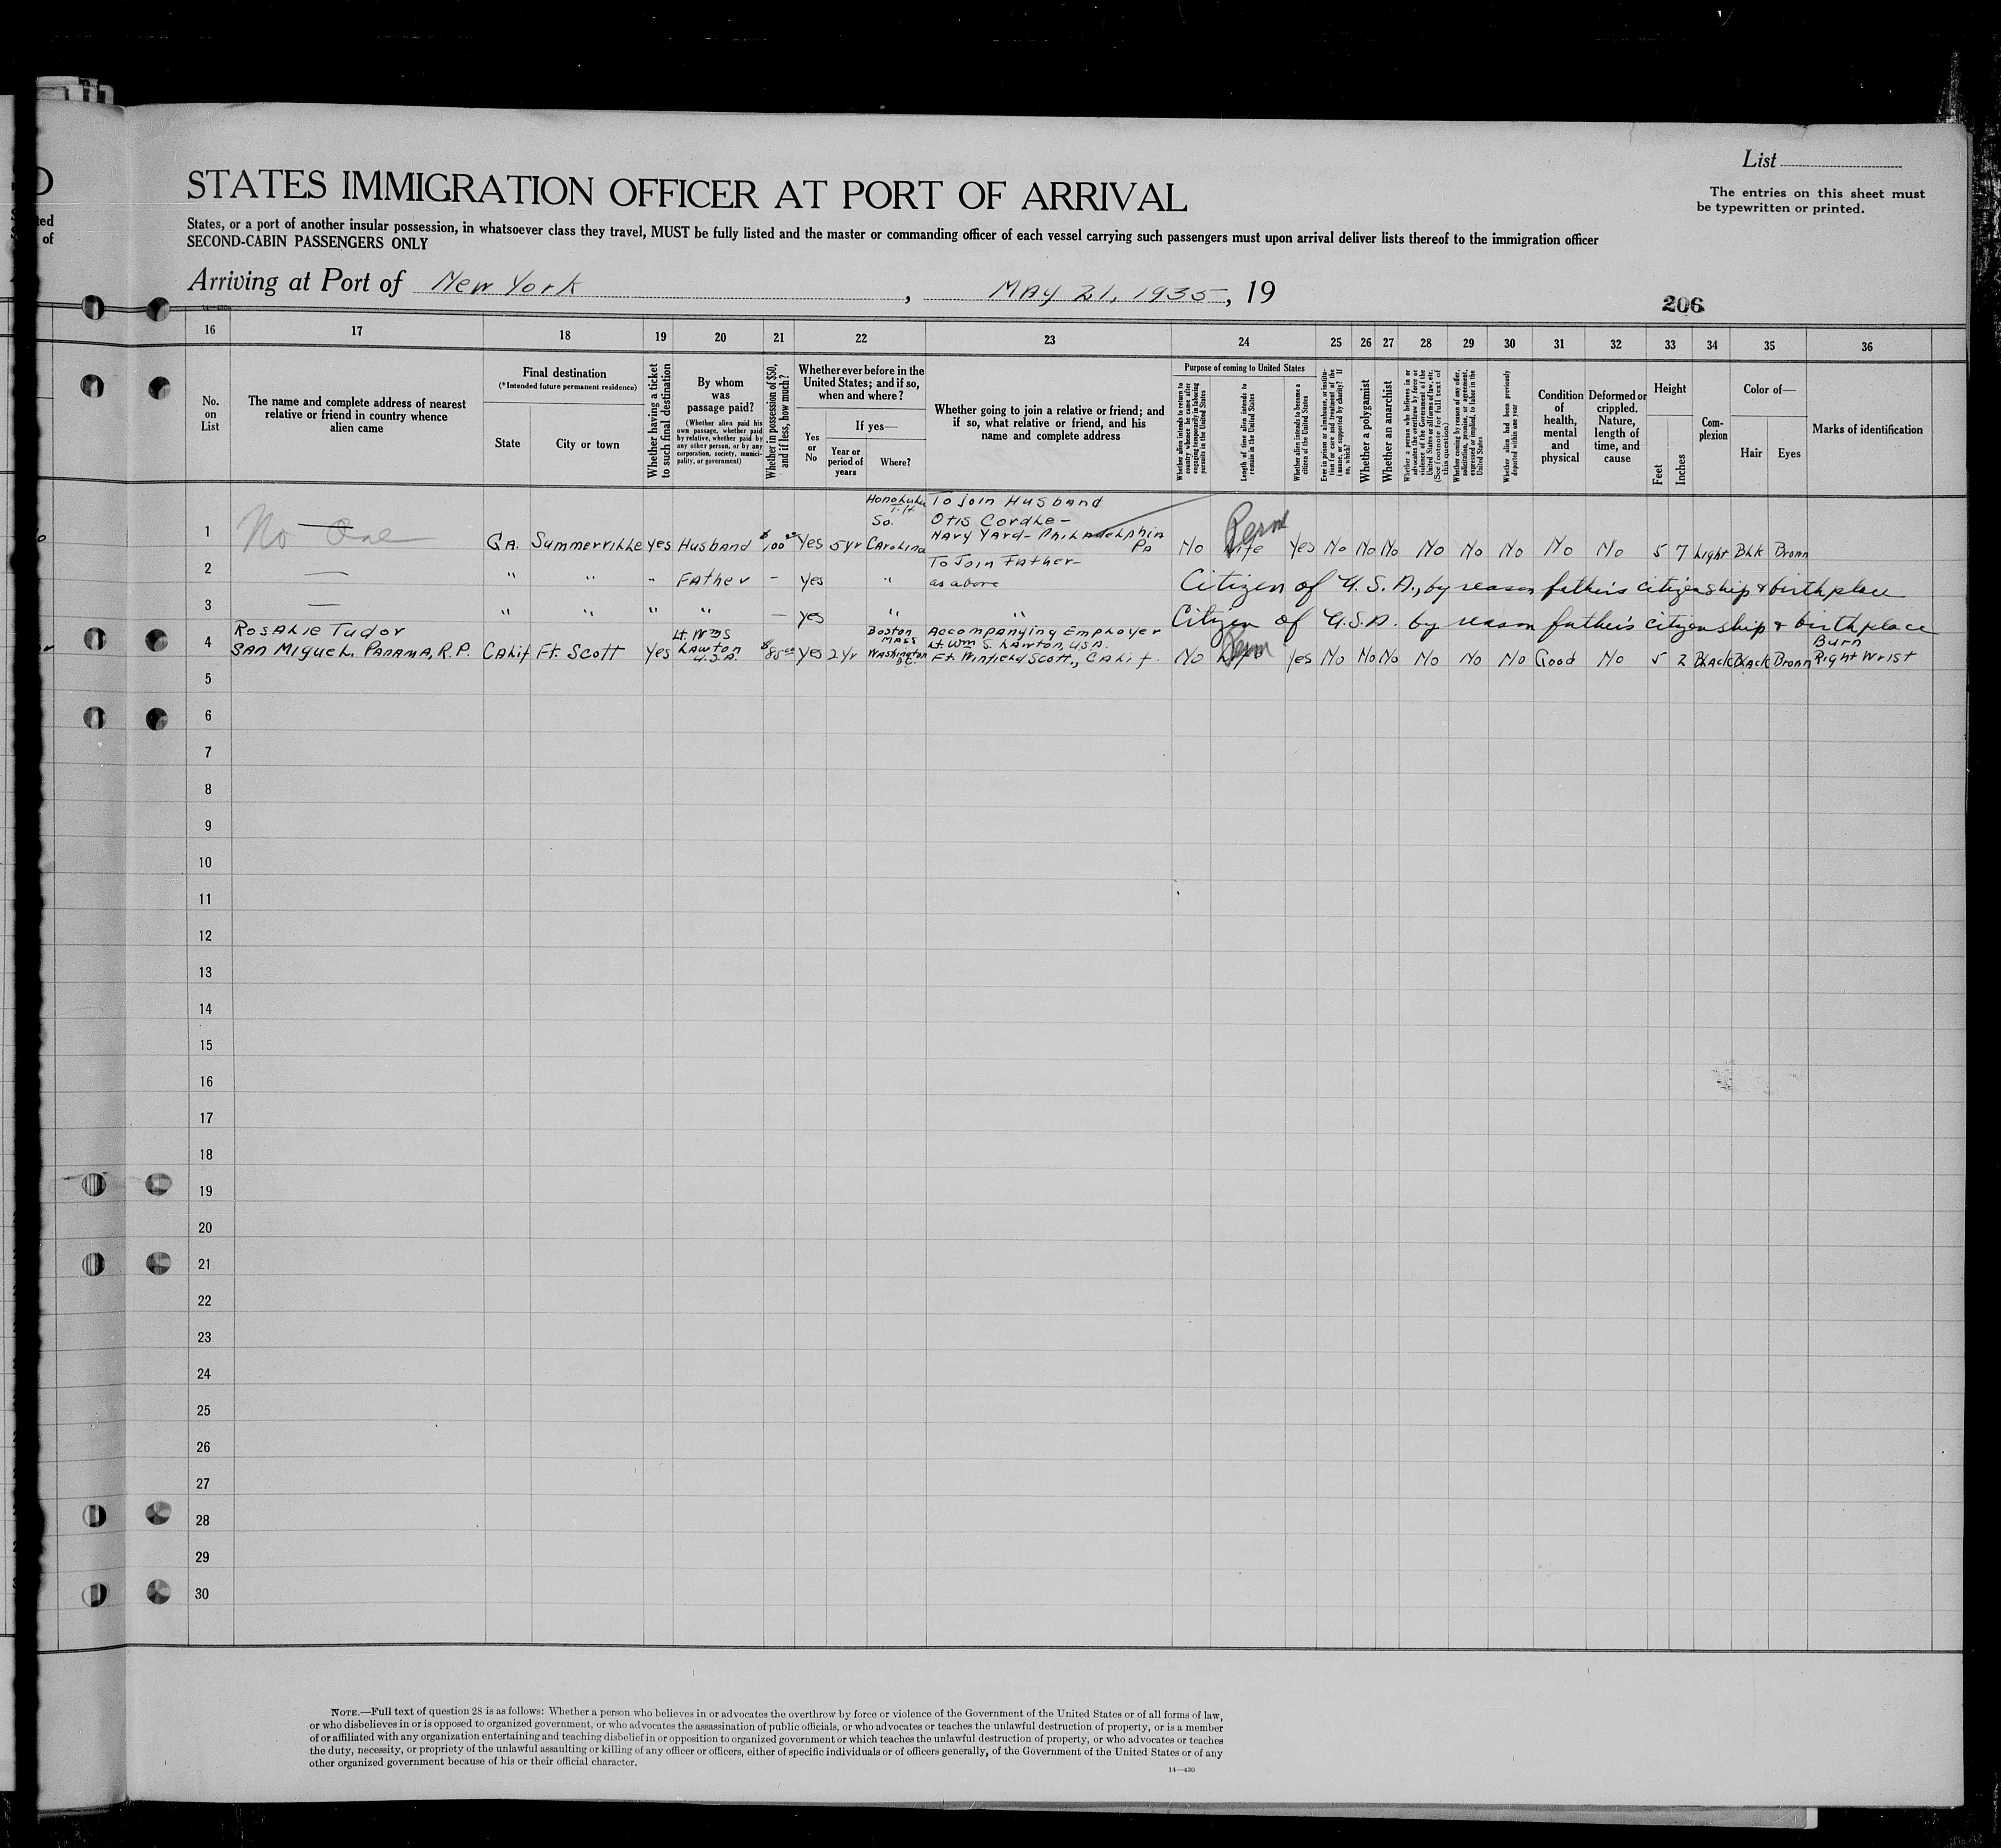 List
STATES IMMIGRATION OFFICER AT PORT OF ARRIVAL
The entries on this sheet must
be typewritten or printed.
ted
of
States, or a port of another insular possession, in whatsoever class they travel, MUST be fully listed and the master or commanding officer of each vessel carrying such passengers must upon arrival deliver lists thereof to the immigration officer
SECOND-CABIN PASSENGERS ONLY
Arriving at Port of New York, May 21, 1935, 19
206
16 17 18 19 20 21 22 23 24 25 26 27 28 29 30 31 32 33 34 35 36
No. on List
The name and complete address of nearest
relative or friend in country whence
alien came
Final destination
(*Intended future permanent residence)
State City or town
Whether having a ticket
to such final destination
By whom
was
passage paid?
(Whether alien paid his
own passage, whether paid
by relative, whether paid by
any other person, or by any
corporation, society, munici-
pality, or government)
Whether in possession of $50,
and if less, how much?
Whether ever before in the
United States; and if so,
when and where?
Yes
or
No
If yes—
Year or
period of
years
Where?
Whether going to join a relative or friend; and
if so, what relative or friend, and his
name and complete address
Purpose of coming to United States
Whether alien intends to return to
country whence he came after
engaging temporarily in laboring
pursuits in the United States
Length of time alien intends to
remain in the United States
Whether alien intends to become a
citizen of the United States
Ever in prison or almshouse, or institu-
tion for care and treatment of the
insane, or supported by charity? If
so, which?
Whether a polygamist
Whether an anarchist
Whether a person who believes in or
advocates the overthrow by force or
violence of the Government of the
United States or all forms of law, etc.
(See footnote for full text of
this question)
Whether coming by reason of any offer,
solicitation, promise, or agreement,
expressed or implied, to labor in the
United States
Whether alien had been previously
deported within one year
Condition
of
health,
mental
and
physical
Deformed or
crippled.
Nature,
length of
time, and
cause
Height
Feet Inches
Com-
plexion
Color of—
Hair Eyes
Marks of identification
1 No One GA. Summerville Yes Husband $100 Yes 5 yr Honolulu T.H. So. Carolina To Join Husband
Otis Cordle-
Navy Yard- Philadelphia
Pa
No Perm Life Yes No No No No No No No No 5 7 Light Blk Brown
2 — " " " Father - Yes " To Join Father-
as above
Citizen of U.S.A., by reason father's citizenship & birthplace
3 — " " " " — Yes " "
Citizen of U.S.A. by reason father's citizenship & birthplace
4 Rosalie Tudor
San Miguel. Panama, R.P. Calif Ft. Scott Yes Lt Wm S
Lawton
U.S.A. $85 Yes 2 yr Boston
Mass
Washington
D.C. Accompanying Employer
Lt Wm S. Lawton, USA.
Ft. Winfield Scott, Calif.
No Perm Yes No No No No No No Good No 5 2 Black Black Brown Burn
Right Wrist
5
6
7
8
9
10
11
12
13
14
15
16
17
18
19
20
21
22
23
24
25
26
27
28
29
30
NOTE.—Full text of question 28 is as follows: Whether a person who believes in or advocates the overthrow by force or violence of the Government of the United States or of all forms of law,
or who disbelieves in or is opposed to organized government, or who advocates the assassination of public officials, or who advocates or teaches the unlawful destruction of property, or is a member
of or affiliated with any organization entertaining and teaching disbelief in or opposition to organized government or which teaches the unlawful destruction of property, or who advocates or teaches
the duty, necessity, or propriety of the unlawful assaulting or killing of any officer or officers, either of specific individuals or of officers generally, of the Government of the United States or of any
other organized government because of his or their official character.
14—430